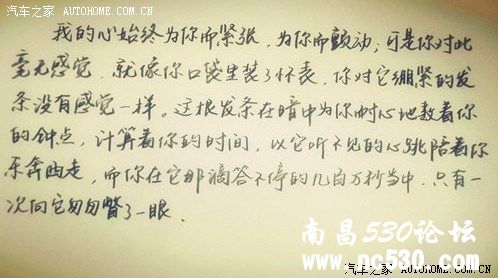 汽车之家 AUTOHOME.COM.CN
我的心始终为你而紧张,为你而颤动;可是你对此
毫无感觉.就像你口袋里装了怀表,你对它绷紧的发
条没有感觉一样。这根发条在暗中为你耐心地数着你
的钟点,计算着你的时间,以它听不见的心跳陪着你
东奔西走,而你在它那滴答不停的几百万秒当中.只有一
次向它匆匆瞥了一眼.
南昌530论坛
www.nc530.com
汽车之家 AUTOHOME.COM.CN